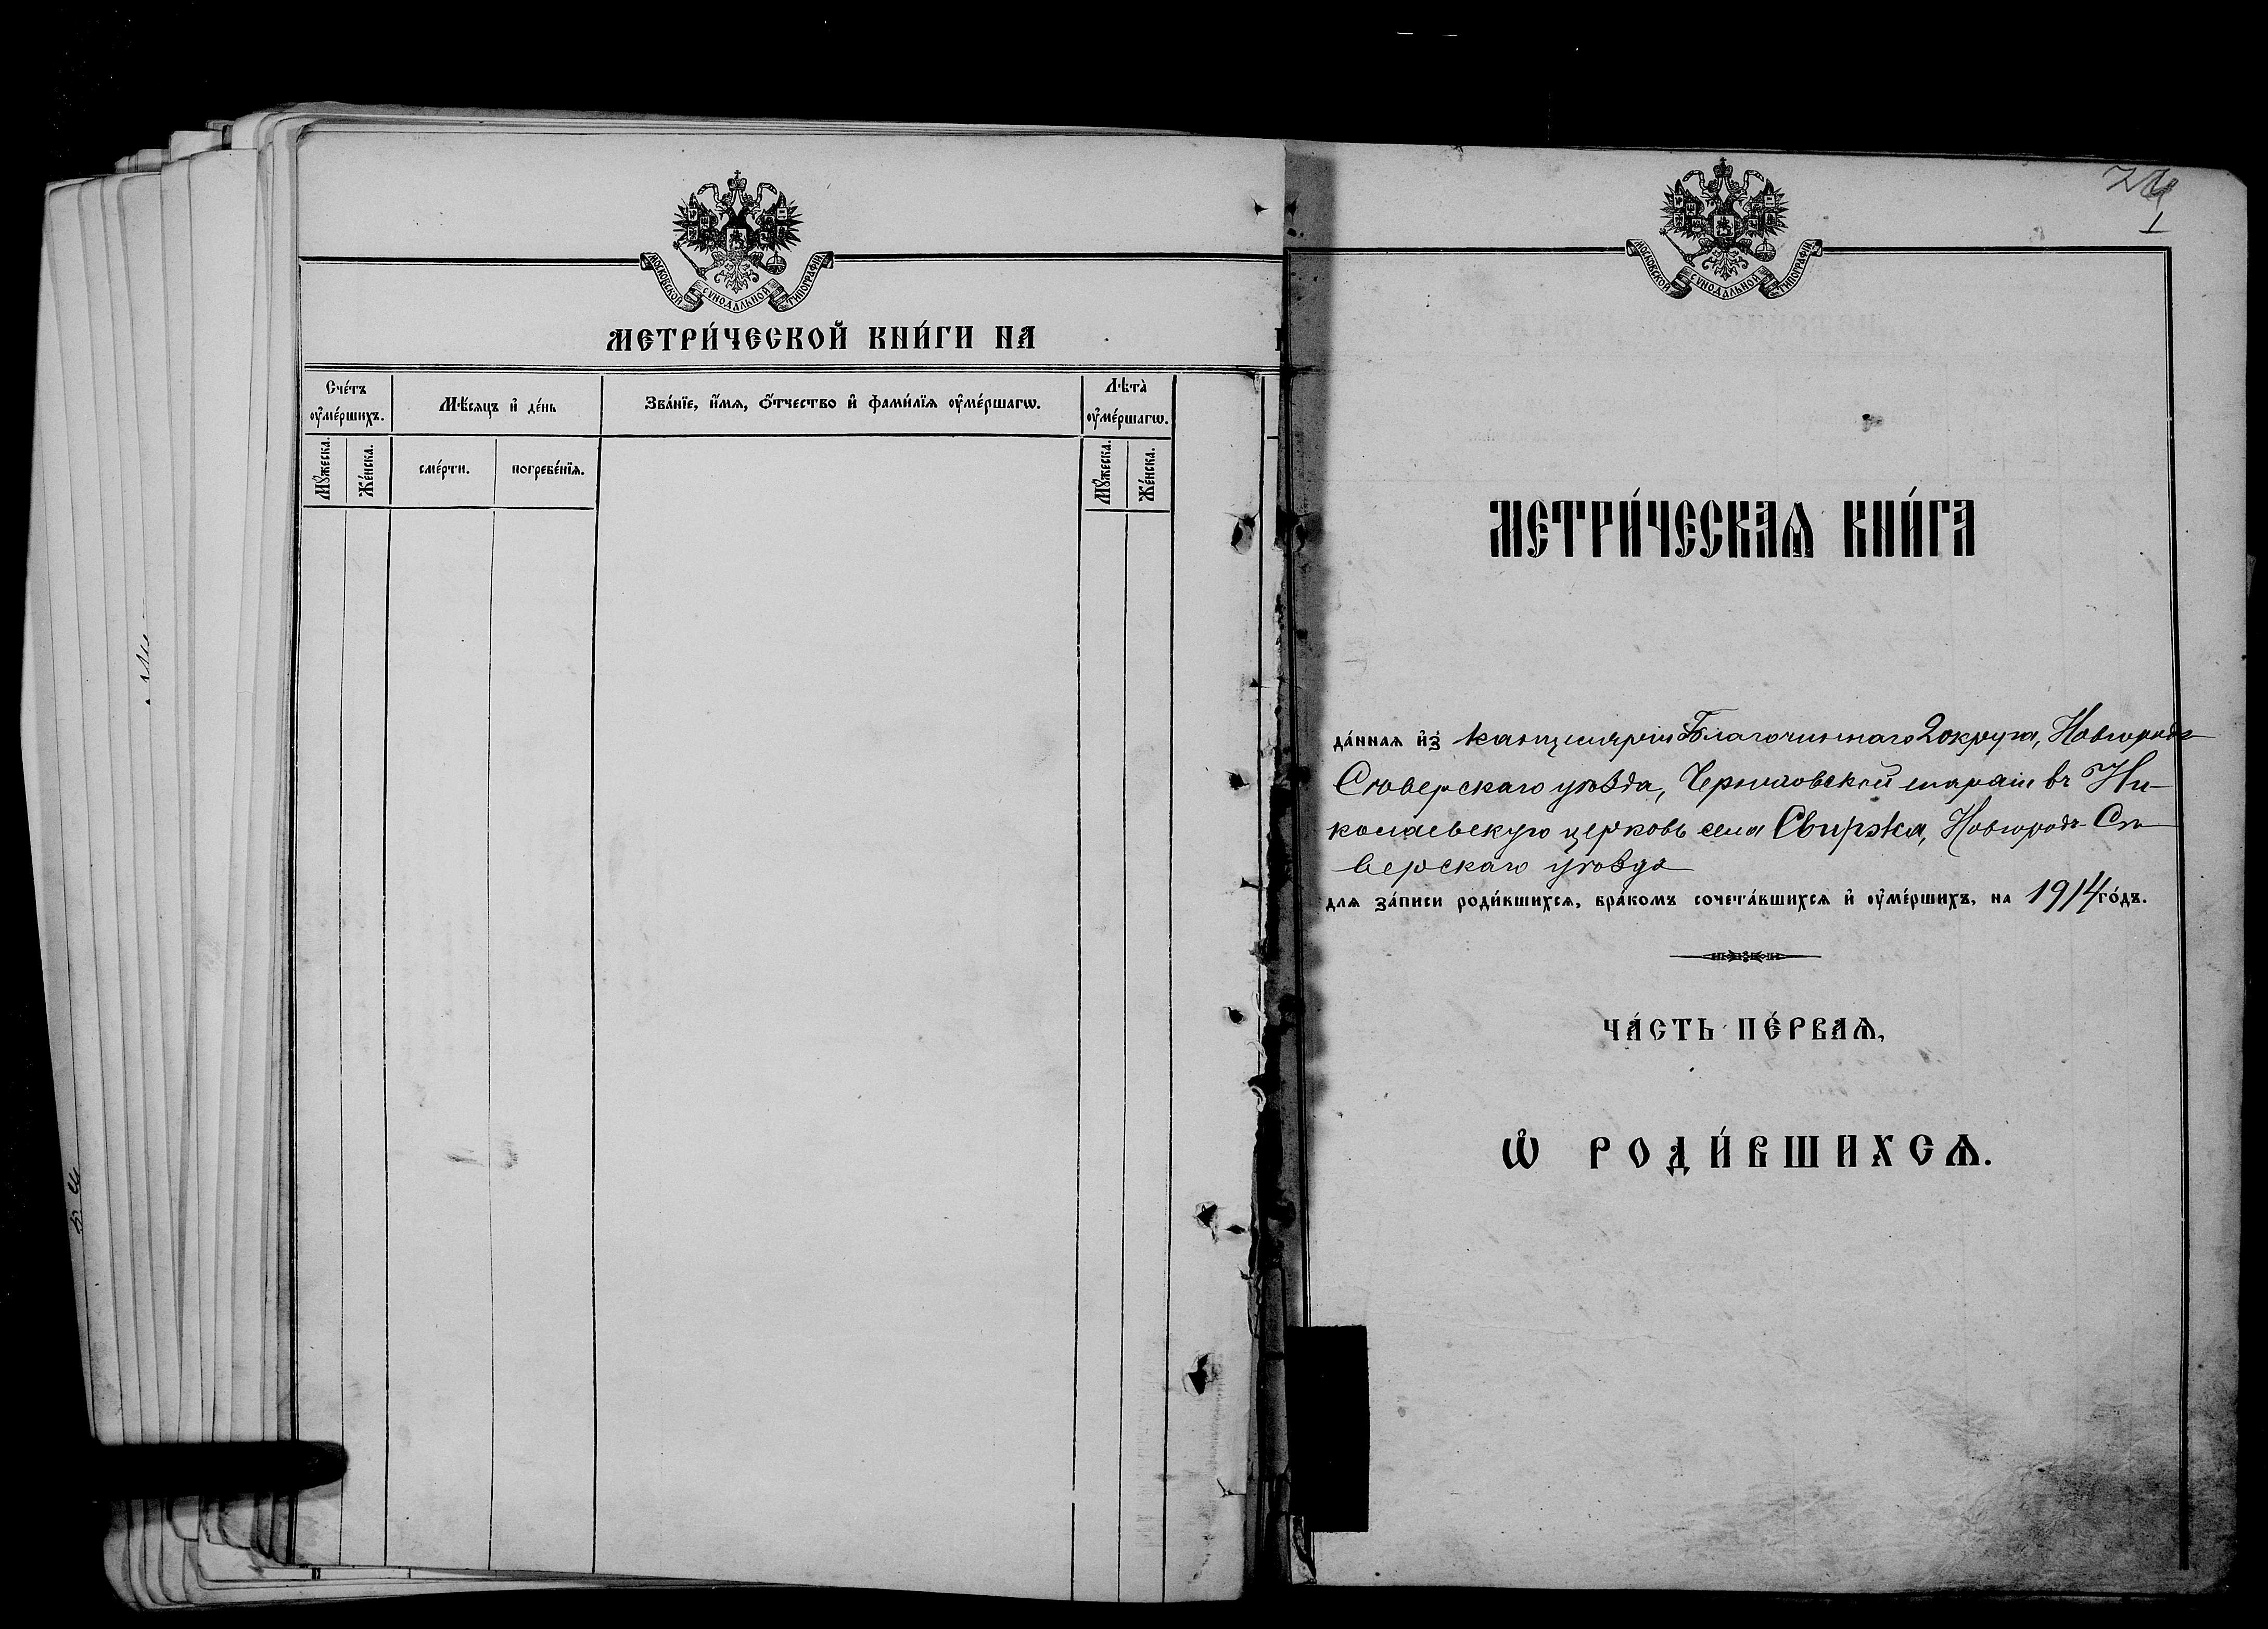 МОСКОВСКОЙ СУНОДАЛЬНОЙ ТИПОГРАФІИ
МЕТРИ́ЧЕСКОЙ КНИ́ГИ НА
Сче́тъ ᲂу҆ме́ршихъ.
Мѣ́сяцъ и҆ де́нь
Зва́нїе, и҆́мѧ, ѻ҆́тчество и҆ фами́лїѧ ᲂу҆ме́ршагѡ.
Лѣта̀ ᲂу҆ме́ршагѡ.
Мꙋ́жеска.
Же́нска.
сме́рти.
погребе́нїѧ.
Мꙋ́жеска.
Же́нска.
МОСКОВСКОЙ СУНОДАЛЬНОЙ ТИПОГРАФІИ
1
МЕТРИ́ЧЕСКАѦ КНИ́ГА
да́ннаѧ и҆з̾ канцеляріи Благочиннаго 2 округа, Новгородъ
Сѣверскаго уѣзда, Черниговской епархіи въ Ни-
колаевскую церковь села Свиржа, Новгородъ-Сѣ-
верскаго уѣзда
для за́писи роди́вшихсѧ, бра́комъ сочета́вшихсѧ и҆ ᲂу҆ме́ршихъ, на 1914 го́дъ.
ЧА́СТЬ ПЕ́РВАѦ,
Ѡ҆ РОДИ́ВШИХСѦ.